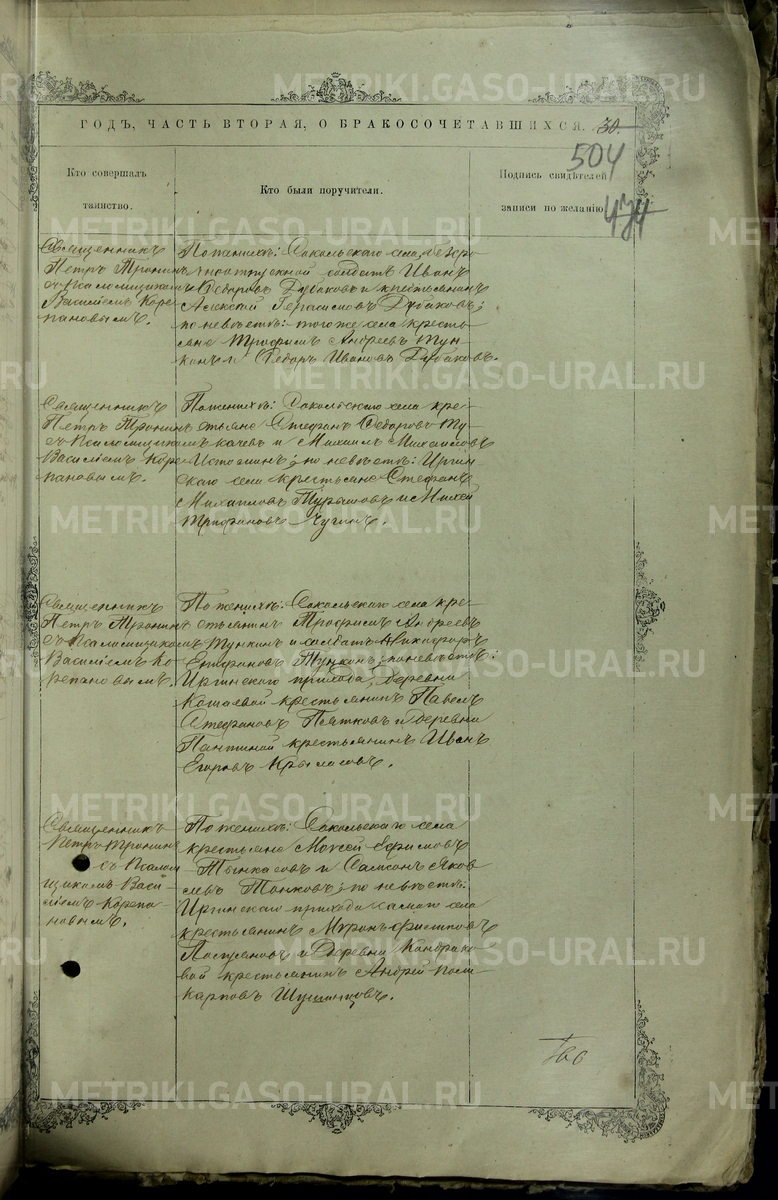 ГОДЪ, ЧАСТЬ ВТОРАЯ, О БРАКОСОЧЕТАВШИХСЯ. 30.
504
474
Кто совершалъ
таинство.
Кто были поручители.
Подпись свидѣтелей
записи по желанію
Священникъ
Петръ Тронинъ
съ Псаломщикомъ
Василіемъ Коре-
пановымъ.
По женихѣ: Сокольскаго села, безсро-
чноотпускной солдатъ Иванъ
Ѳедоровъ Дубаковъ и крестьянинъ
Алексѣй Герасимовъ Дубаковъ;
по невѣстѣ: того же села кресть-
яне Трофимъ Андреевъ Тун-
кинъ и Ѳедоръ Ивановъ Дубаковъ.
Священникъ
Петръ Тронинъ
съ Псаломщикомъ
Василіемъ Коре-
пановымъ.
По женихѣ: Сокольскаго села кре-
стьяне Стефанъ Ѳедоровъ Ту-
качевъ и Михаилъ Михаиловъ
Истоминъ; по невѣстѣ: Иргин-
скаго села крестьяне Стефанъ
Михаиловъ Турышовъ и Михей
Трифановъ Чугинъ.
Священникъ
Петръ Тронинъ
съ Псаломщикомъ
Василіемъ Ко-
репановымъ.
По женихѣ: Сокольскаго села кре-
стьянинъ Трофимъ Андреевъ
Тункинъ и солдатъ Никифоръ
Епифановъ Тункинъ; по невѣстѣ:
Иргинскаго прихода, деревни
Кошаевой крестьянинъ Павелъ
Стефановъ Пятковъ и деревни
Пантиной крестьянинъ Иванъ
Егоровъ Крыласовъ.
Священникъ
Петръ Тронинъ
съ Псалом-
щикомъ Васи-
ліемъ Корепа-
новымъ.
По женихѣ: Сокольскаго села
крестьяне Моисей Ефимовъ
Тынкасовъ и Самсонъ Яков-
левъ Тонковъ; по невѣстѣ:
Иргинскаго прихода самаго села
крестьянинъ Миронъ Филиповъ
и Деревни Кондрако-
вой крестьянинъ Андрей Поли-
карповъ Шушпановъ.
METRIKI.GASO-URAL.RU